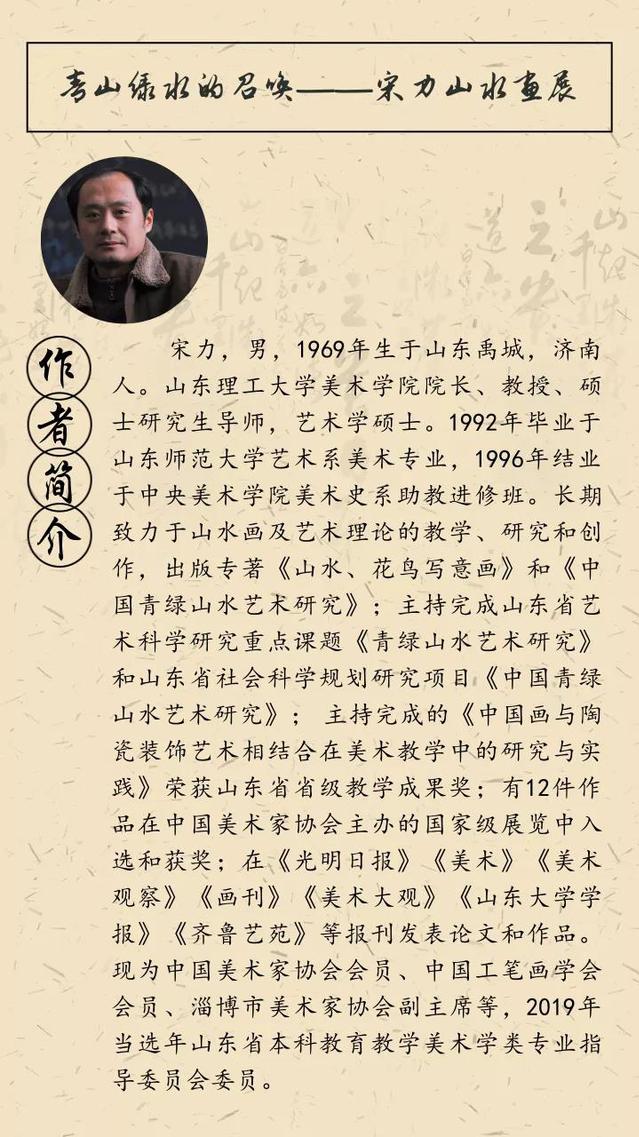 青山绿水的召唤——宋力山水画展
作者简介
宋力，男，1969年生于山东禹城，济南
人。山东理工大学美术学院院长、教授、硕
士研究生导师，艺术学硕士。1992年毕业于
山东师范大学艺术系美术专业，1996年结业
于中央美术学院美术史系助教进修班。长期
致力于山水画及艺术理论的教学、研究和创
作，出版专著《山水、花鸟写意画》和《中
国青绿山水艺术研究》；主持完成山东省艺
术科学研究重点课题《青绿山水艺术研究》
和山东省社会科学规划研究项目《中国青绿
山水艺术研究》； 主持完成的《中国画与陶
瓷装饰艺术相结合在美术教学中的研究与实
践》荣获山东省省级教学成果奖；有12件作
品在中国美术家协会主办的国家级展览中入
选和获奖；在《光明日报》《美术》《美术
观察》《画刊》《美术大观》《山东大学学
报》《齐鲁艺苑》等报刊发表论文和作品。
现为中国美术家协会会员、中国工笔画学会
会员、淄博市美术家协会副主席等，2019年
当选年山东省本科教育教学美术学类专业指
导委员会委员。